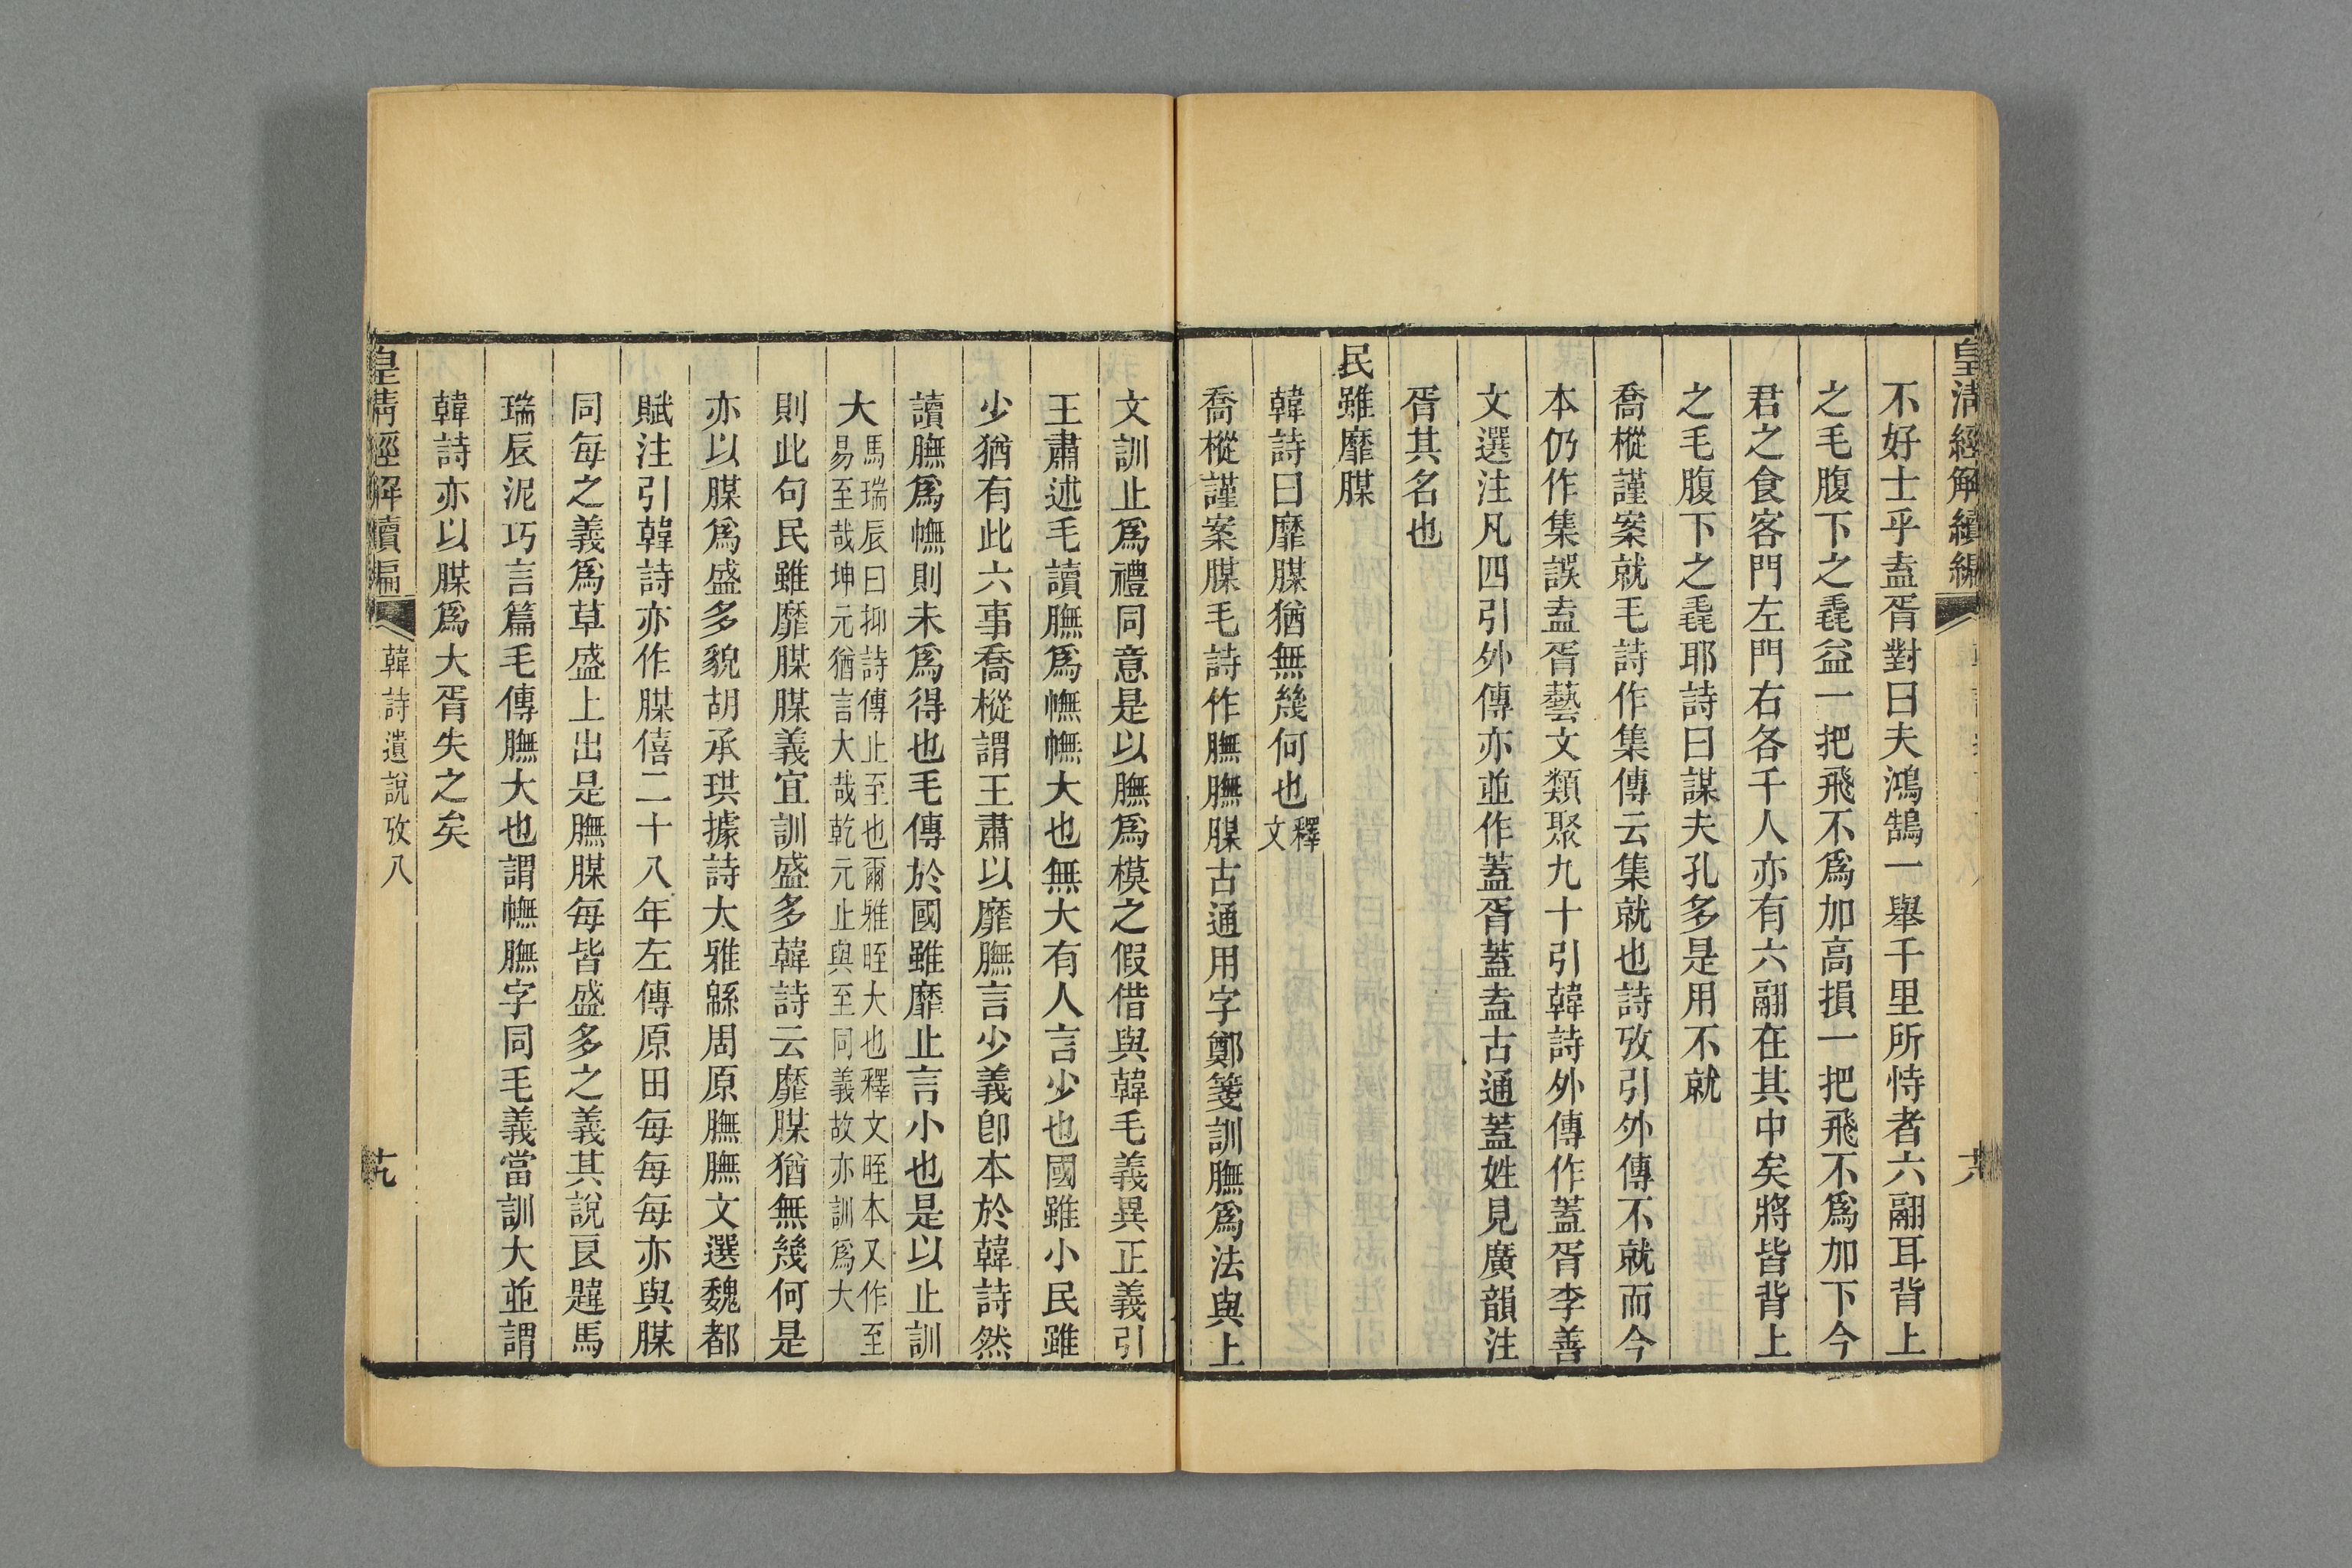 皇清經解續編
不好士乎盍胥對曰夫鴻鵠一舉千里所恃者六翮耳背上
之毛腹下之毳益一把飛不爲加高損一把飛不爲加下今
君之食客門左門右各千人亦有六翮在其中矣將皆背上
之毛腹下之毳耶詩曰謀夫孔多是用不就
喬樅謹案就毛詩作集傳云集就也詩攷引外傳不就而今
本仍作集誤盍胥藝文類聚九十引韓詩外傳作蓋胥李善
文選注凡四引外傳亦並作蓋胥蓋盍古通蓋姓見廣韻注
胥其名也
民雖靡腜
韓詩曰靡腜猶無幾何也釋文
喬樅謹案腜毛詩作膴膴腜古通用字鄭箋訓膴爲法與上
文訓止爲禮同意是以膴爲模之假借與韓毛義異正義引
王肅述毛讀膴爲幠幠大也無大有人言少也國雖小民雖
少猶有此六事喬樅謂王肅以靡膴言少義卽本於韓詩然
讀膴爲幠則未爲得也毛傳於國雖靡止言小也是以止訓
大馬瑞辰曰抑詩傳止至也爾雅晊大也釋文晊本又作至
易至哉坤元猶言大哉乾元止與至同義故亦訓爲大
則此句民雖靡腜腜義宜訓盛多韓詩云靡腜猶無幾何是
亦以腜爲盛多貌胡承珙據詩大雅緜周原膴膴文選魏都
賦注引韓詩亦作腜僖二十八年左傳原田每每每亦與腜
同每之義爲草盛上出是膴腜每皆盛多之義其說良韙馬
瑞辰泥巧言篇毛傳膴大也謂幠膴字同毛義當訓大並謂
韓詩亦以腜爲大胥失之矣
皇清經解續編
韓詩遺說攷八